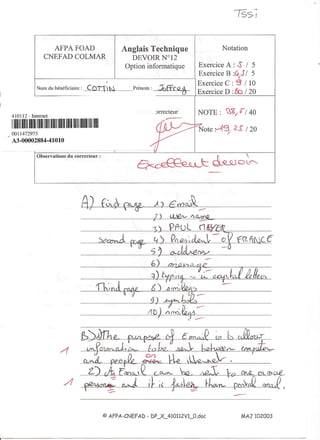 TSSI
AFPA FOAD
CNEFAD COLMAR
Anglais Technique
DEVOIR N°12
Option informatique
Notation
Exercice A : 5 / 5
Exercice B : 4,5/ 5
Exercice C : 9 / 10
Exercice D : / 20
Nom du bénéficiaire : COTTIN
Prénom : Jeffrey
410112 - Internet
0011472973
A3-00002884-41010
orrecteur
NOTE : 38,5/ 40
Note : 19,25 / 20
Observations du correcteur :
Excellent devoir
A) First page 1) Email
2) user name
3) PAUL MAYER
second page 4) President of FRANCE
5) address
6) message
7) typing in capital letters
Third page 8) smileys
9) symbols
10) smileys
B) 1) The purpose of Email is to allow
information to be sent between computers
and people over the internet.
2) An Email can be sent to one or more
person and it is faster than postal mail.
© AFPA-CNEFAD - DP_X_410112V1_0.doc
MAJ 102003